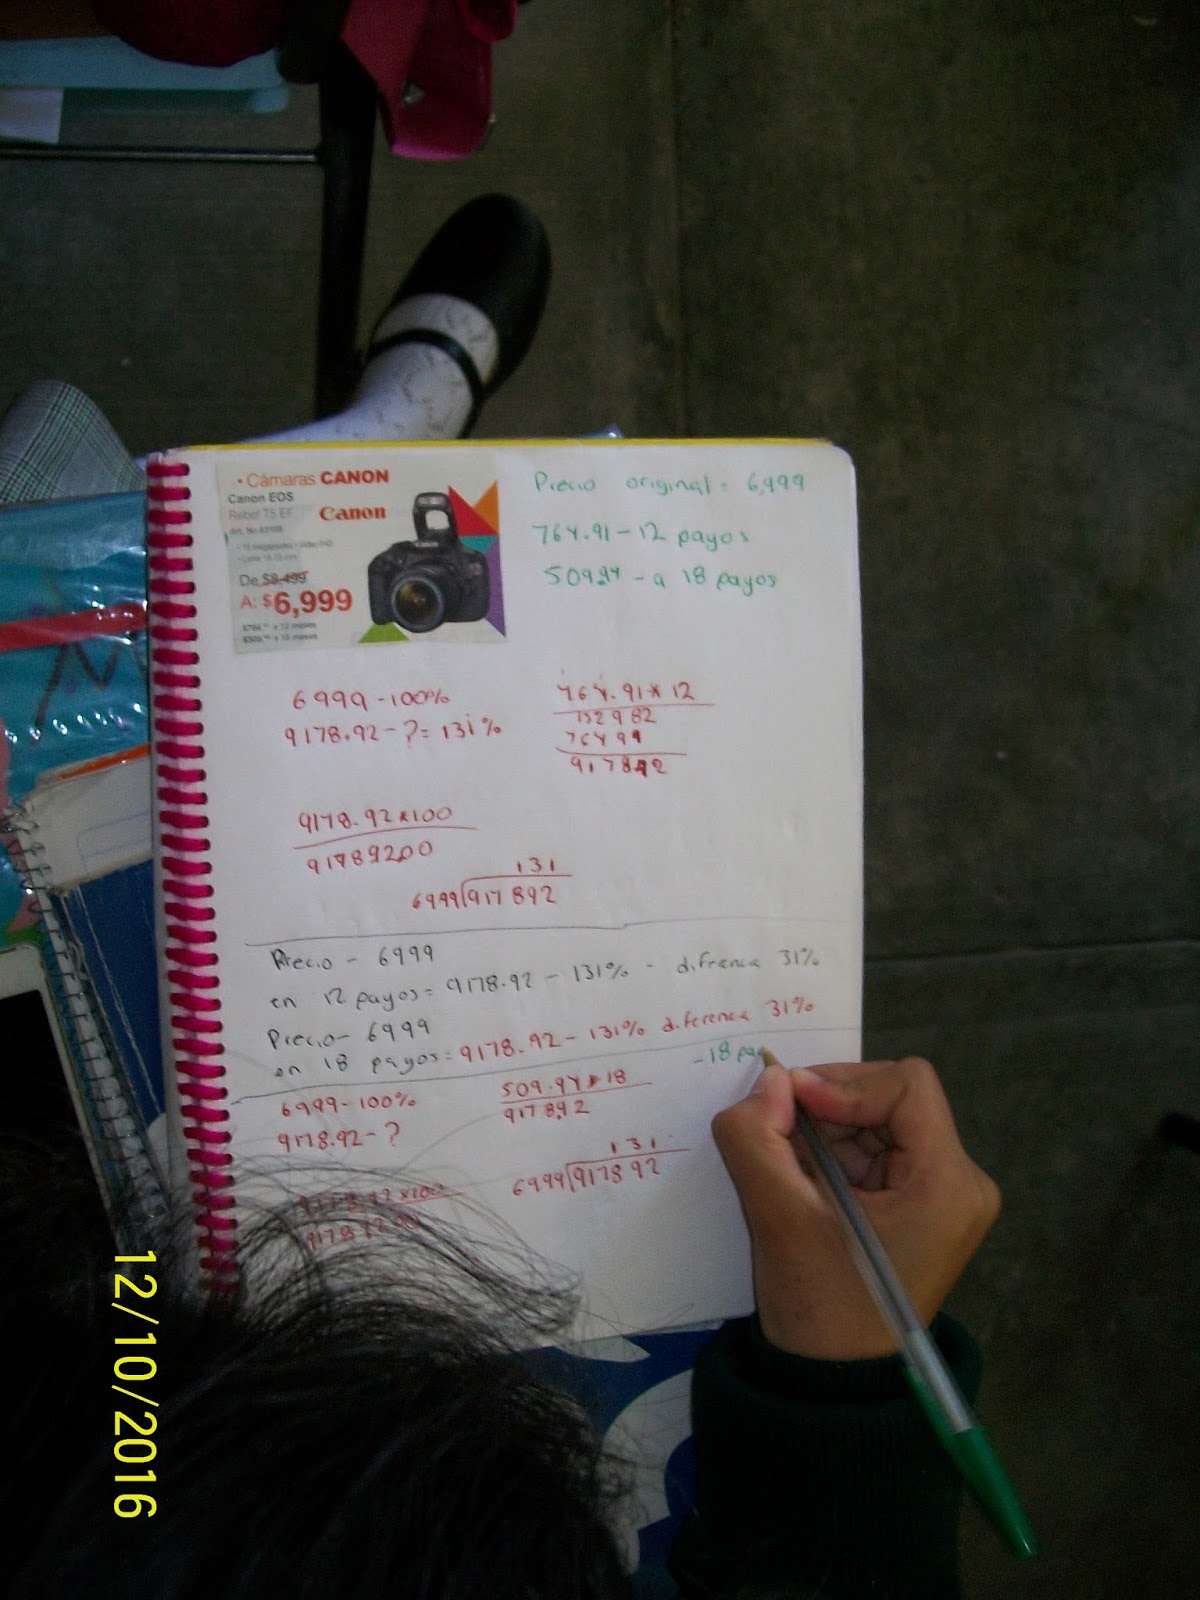 • Cámaras CANON
Canon EOS
Rebel T5 EF
Canon
De $8,499
A: $6,999
Precio original = 6,999
764.91 - 12 payos
509.94 - a 18 payos
6999 - 100%
9178.92 - ? = 131%
764.91 x 12
152982
76491
917892
9178.92 x 100
9178920.0
131
6999 917892
Precio - 6999
en 12 payos = 9178.92 - 131% - difrencia 31%
Precio - 6999
en 18 payos = 9178.92 - 131% diferencia 31%
- 18 pa
6999 - 100%
9178.92 - ?
509.94 x 18
9178.92
131
6999 917892
9178.92 x 100
12/10/2016